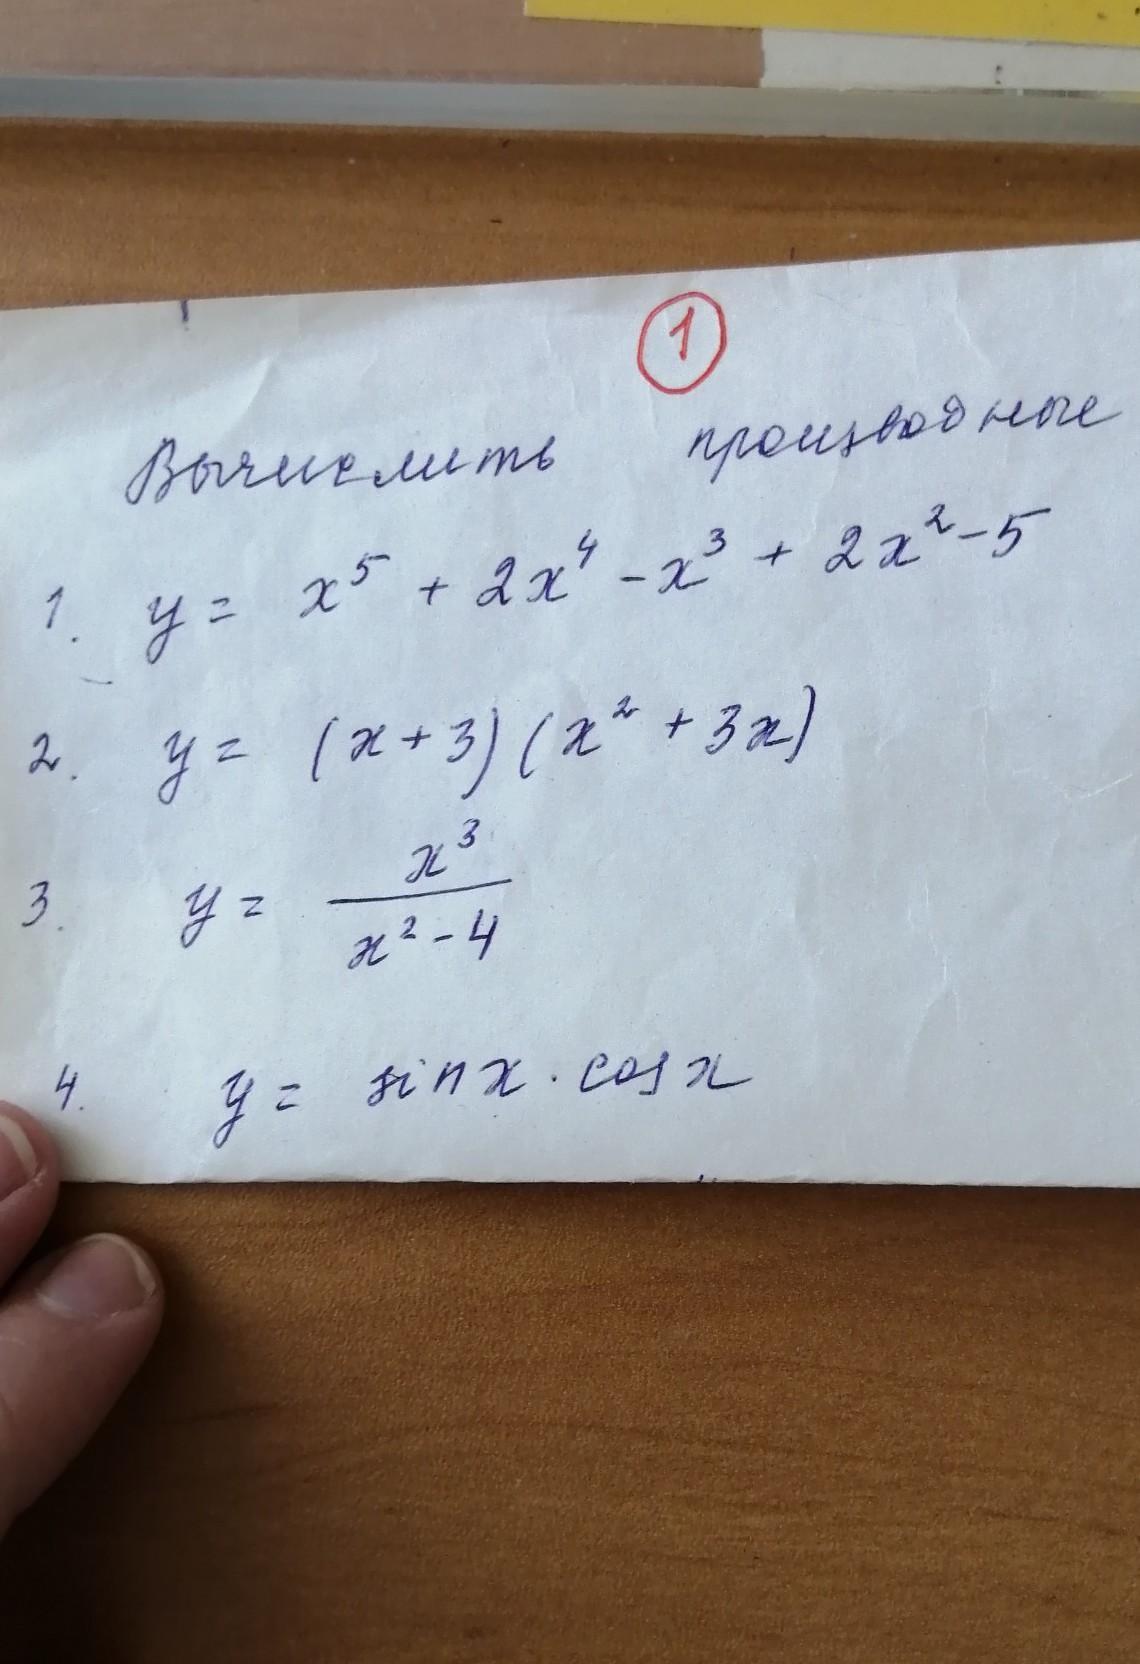 1
Вычислить производные
1. y = x⁵ + 2x⁴ - x³ + 2x² - 5
2. y = (x + 3)(x² + 3x)
3. y = x³ / x² - 4
4. y = sin x · cos x